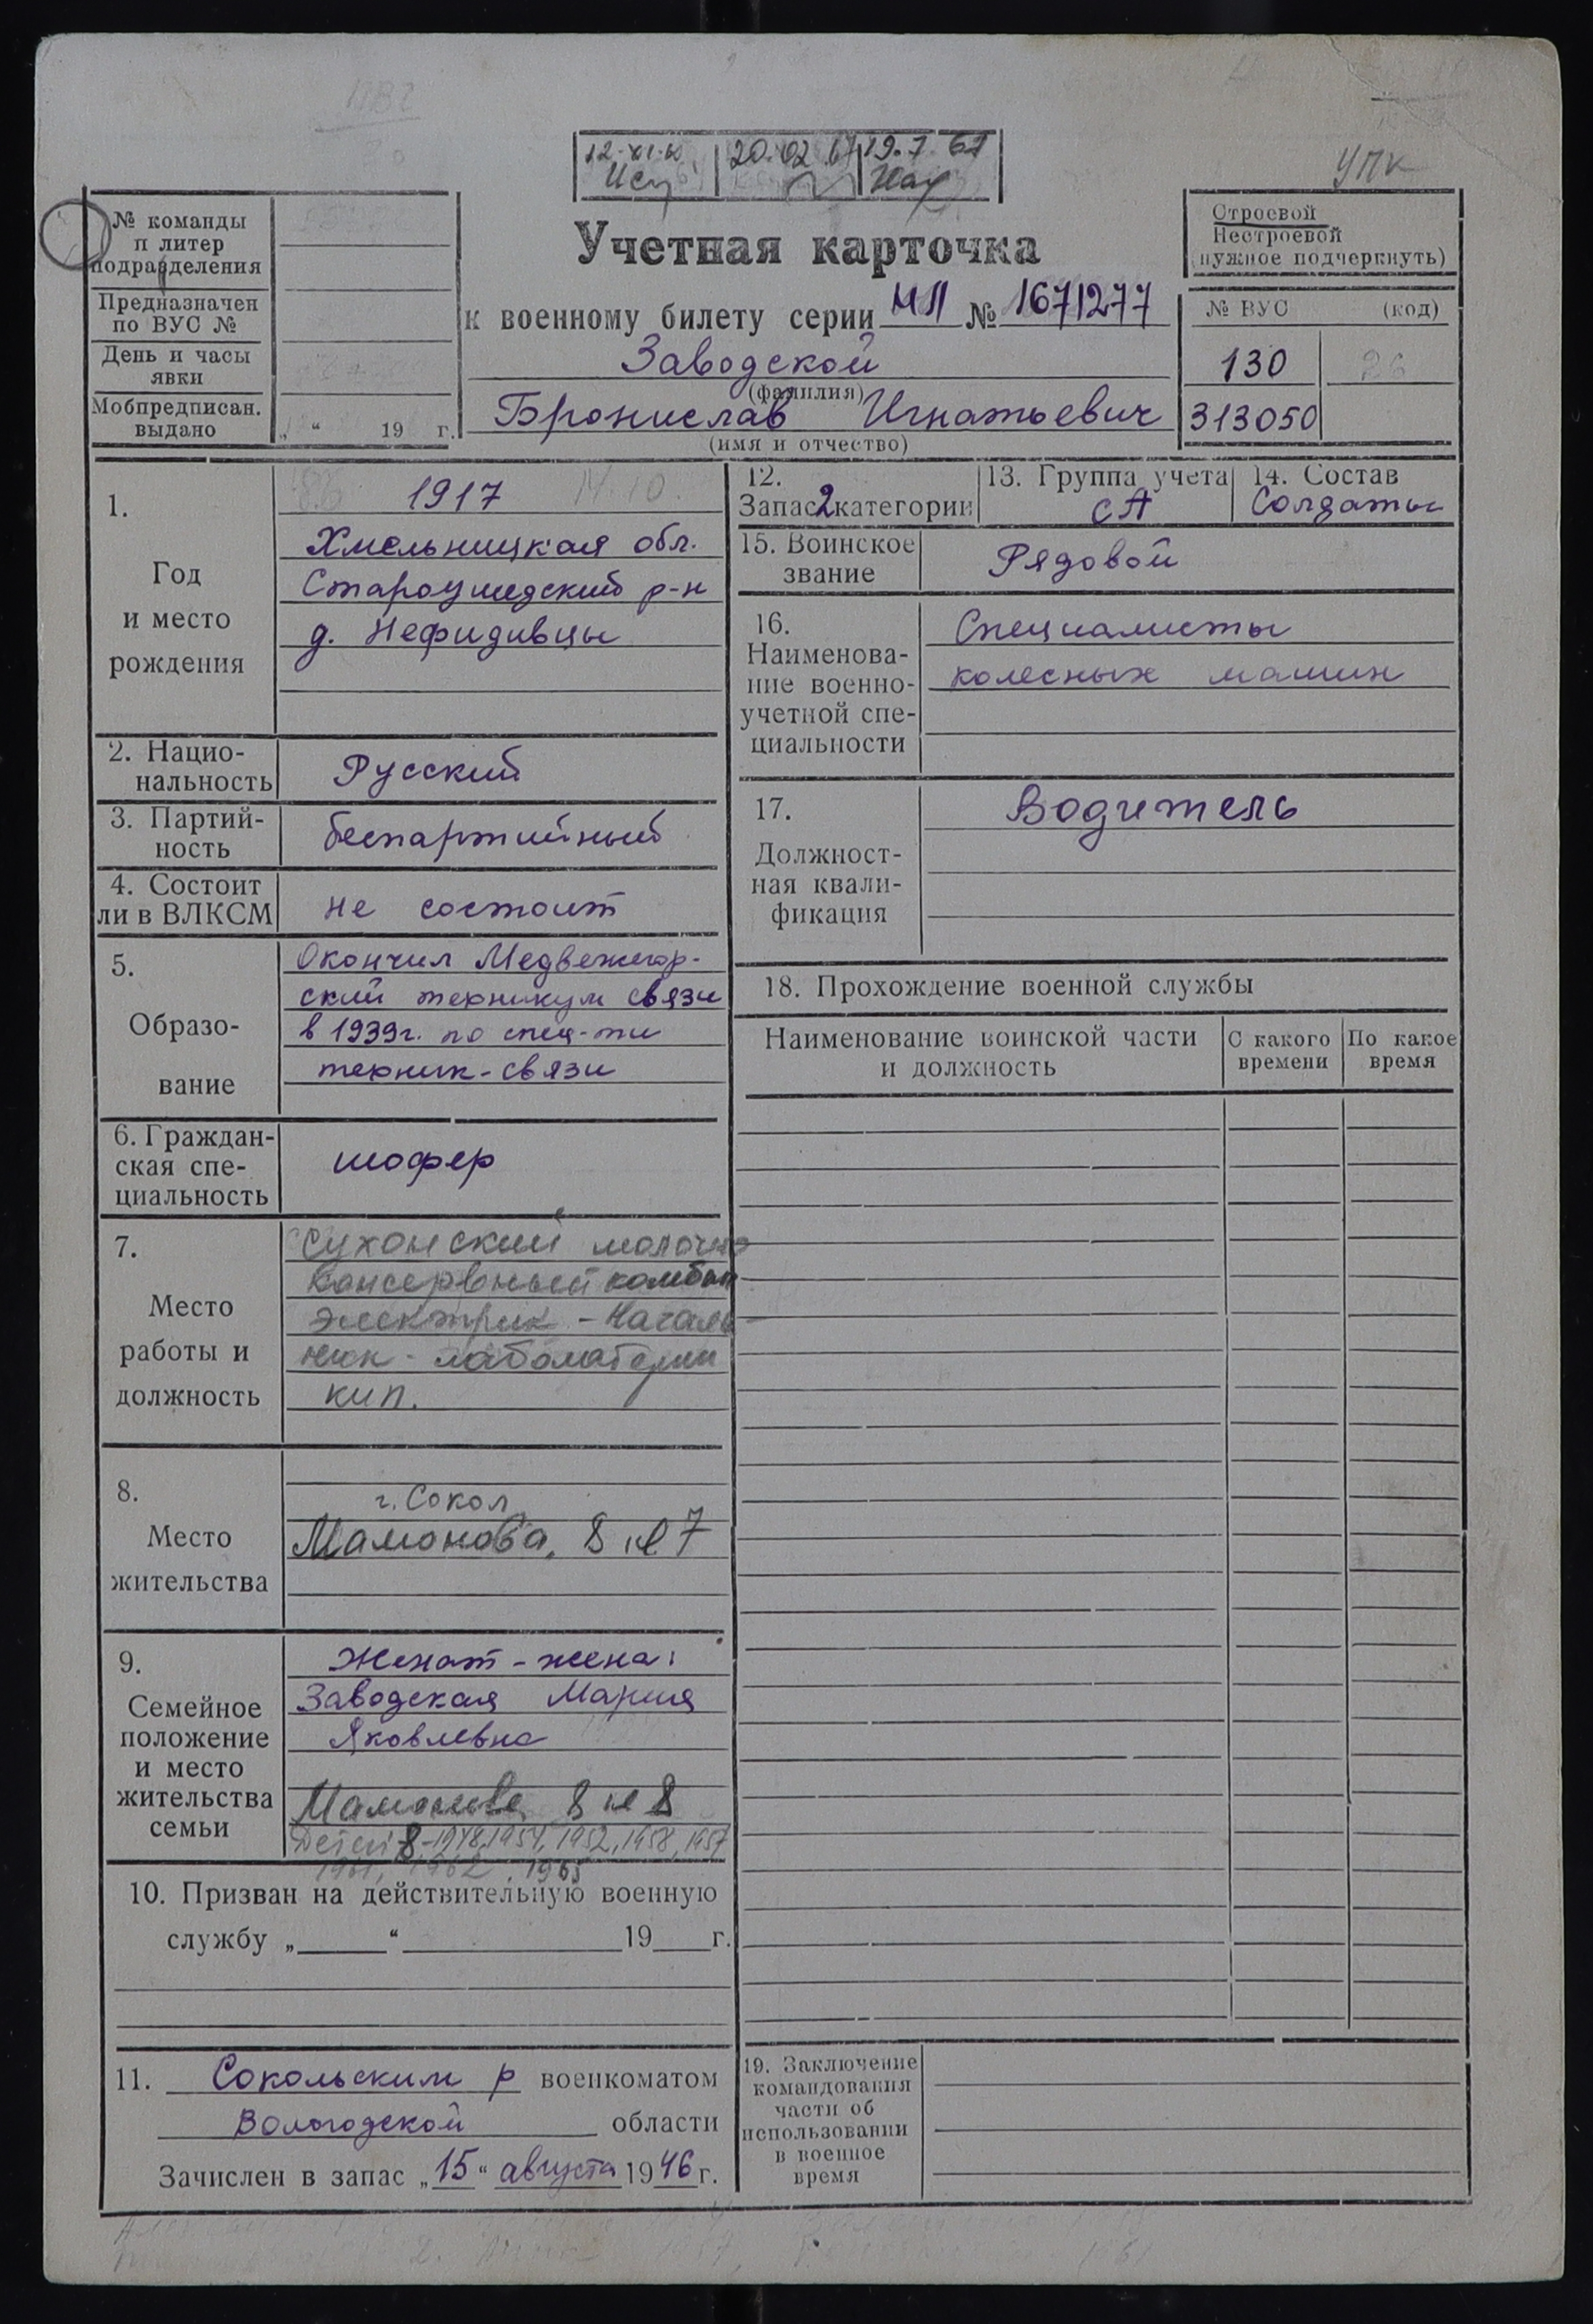 12-XI-60 20.02.67 19.7.61
УПК
№ команды
п литер
подразделения
Предназначен
по ВУС №
День и часы
явки
Мобпредписан.
выдано
„ “ 19 г.
Учетная карточка
к военному билету серии НП № 1671277
Заводской
(фамилия)
Бронислав Игнатьевич
(имя и отчество)
Строевой
Нестроевой
(нужное подчеркнуть)
№ ВУС (код)
130 26
313050
1.
Год
и место
рождения
1917 14.10.
Хмельницкая обл.
Староушедский р-н
д. Нефидивцы
2. Нацио-
нальность
Русский
3. Партий-
ность
беспартийный
4. Состоит
ли в ВЛКСМ
не состоит
5.
Образо-
вание
Окончил Медвежегор-
ский техникум связи
в 1939г. по спец-ти
техник-связи
6. Граждан-
ская спе-
циальность
шофер
7.
Место
работы и
должность
Сухонский молочно
консервный комбин
электрик - Началь
ник - лаболатории
кип.
8.
Место
жительства
г. Сокол
Мамонова, 8 кв 7
9.
Семейное
положение
и место
жительства
семьи
Женат - жена:
Заводская Мария
Яковлевна
Мамонова 8 кв 8
Детей 8 - 1948, 1954, 1952, 1958, 1957
1961, 1962, 1965
10. Призван на действительную военную
службу „ “ 19 г.
11. Сокольским р военкоматом
Вологодской области
Зачислен в запас „15“ августа 1946 г.
12.
Запас 2 категории
13. Группа учета
СА
14. Состав
Солдаты
15. Воинское
звание
Рядовой
16.
Наименова-
ние военно-
учетной спе-
циальности
Специалисты
колесных машин
17.
Должност-
ная квали-
фикация
Водитель
18. Прохождение военной службы
Наименование воинской части
и должность
С какого
времени
По какое
время
19. Заключение
командования
части об
использовании
в военное
время